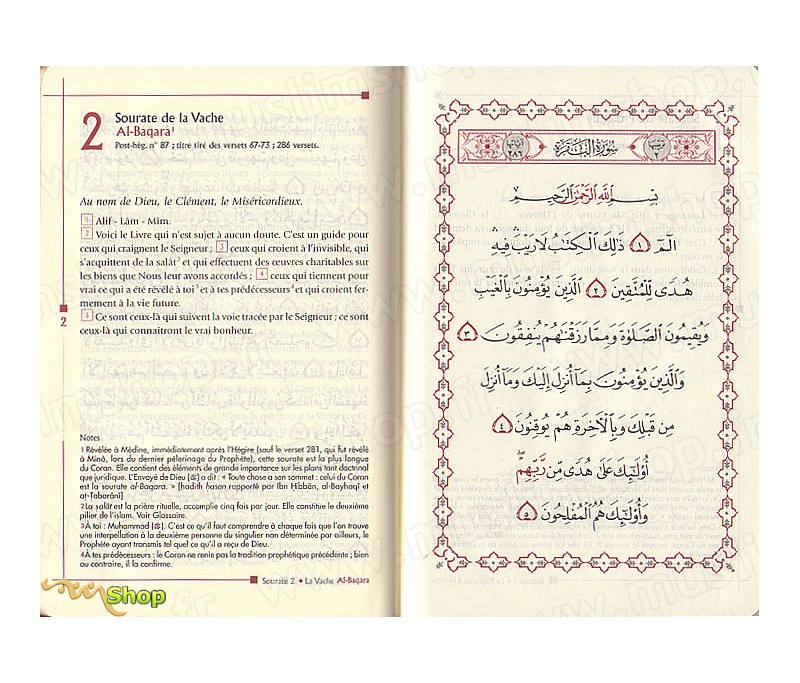 2
Sourate de la Vache
Al-Baqara¹
Post-hég. n° 87 ; titre tiré des versets 67-73 ; 286 versets.
Au nom de Dieu, le Clément, le Miséricordieux.
1 Alif - Lâm - Mîm.
2 Voici le Livre qui n'est sujet à aucun doute. C'est un guide pour
ceux qui craignent le Seigneur ; 3 ceux qui croient à l'invisible, qui
s'acquittent de la salât² et qui effectuent des œuvres charitables sur
les biens que Nous leur avons accordés ; 4 ceux qui tiennent pour
vrai ce qui a été révélé à toi³ et à tes prédécesseurs⁴ et qui croient fer-
mement à la vie future.
5 Ce sont ceux-là qui suivent la voie tracée par le Seigneur ; ce sont
ceux-là qui connaîtront le vrai bonheur.
2
Notes
1 Révélée à Médine, immédiatement après l'Hégire (sauf le verset 281, qui fut révélé
à Minâ, lors du dernier pèlerinage du Prophète), cette sourate est la plus longue
du Coran. Elle contient des éléments de grande importance sur les plans tant doctrinal
que juridique. L'Envoyé de Dieu (ﷺ) a dit : « Toute chose a son sommet : celui du Coran
est la sourate al-Baqara. » [hadîth hasan rapporté par Ibn Hibbân, al-Bayhaqî et
at-Tabarânî]
2 La salât est la prière rituelle, accomplie cinq fois par jour. Elle constitue le deuxième
pilier de l'islam. Voir Glossaire.
3 À toi : Muhammad (ﷺ). C'est ce qu'il faut comprendre à chaque fois que l'on trouve
une interpellation à la deuxième personne du singulier non déterminée par ailleurs, le
Prophète ayant transmis tel quel ce qu'il a reçu de Dieu.
4 À tes prédécesseurs : le Coran ne renie pas la tradition prophétique précédente ; bien
au contraire, il la confirme.
Sourate 2 • La Vache Al-Baqara
Shop
آياتها ٢٨٦ سُورَةُ البَقَرَة ترتيبها ٢
بِسْمِ اللَّهِ الرَّحْمَٰنِ الرَّحِيمِ
الٓمٓ ١ ذَٰلِكَ ٱلْكِتَٰبُ لَا رَيْبَ ۛ فِيهِ ۛ
هُدًى لِّلْمُتَّقِينَ ٢ ٱلَّذِينَ يُؤْمِنُونَ بِٱلْغَيْبِ
وَيُقِيمُونَ ٱلصَّلَوٰةَ وَمِمَّا رَزَقْنَٰهُمْ يُنفِقُونَ ٣
وَٱلَّذِينَ يُؤْمِنُونَ بِمَآ أُنزِلَ إِلَيْكَ وَمَآ أُنزِلَ
مِن قَبْلِكَ وَبِٱلْءَاخِرَةِ هُمْ يُوقِنُونَ ٤
أُو۟لَٰٓئِكَ عَلَىٰ هُدًى مِّن رَّبِّهِمْ ۖ
وَأُو۟لَٰٓئِكَ هُمُ ٱلْمُفْلِحُونَ ٥
www.muslimshop.fr